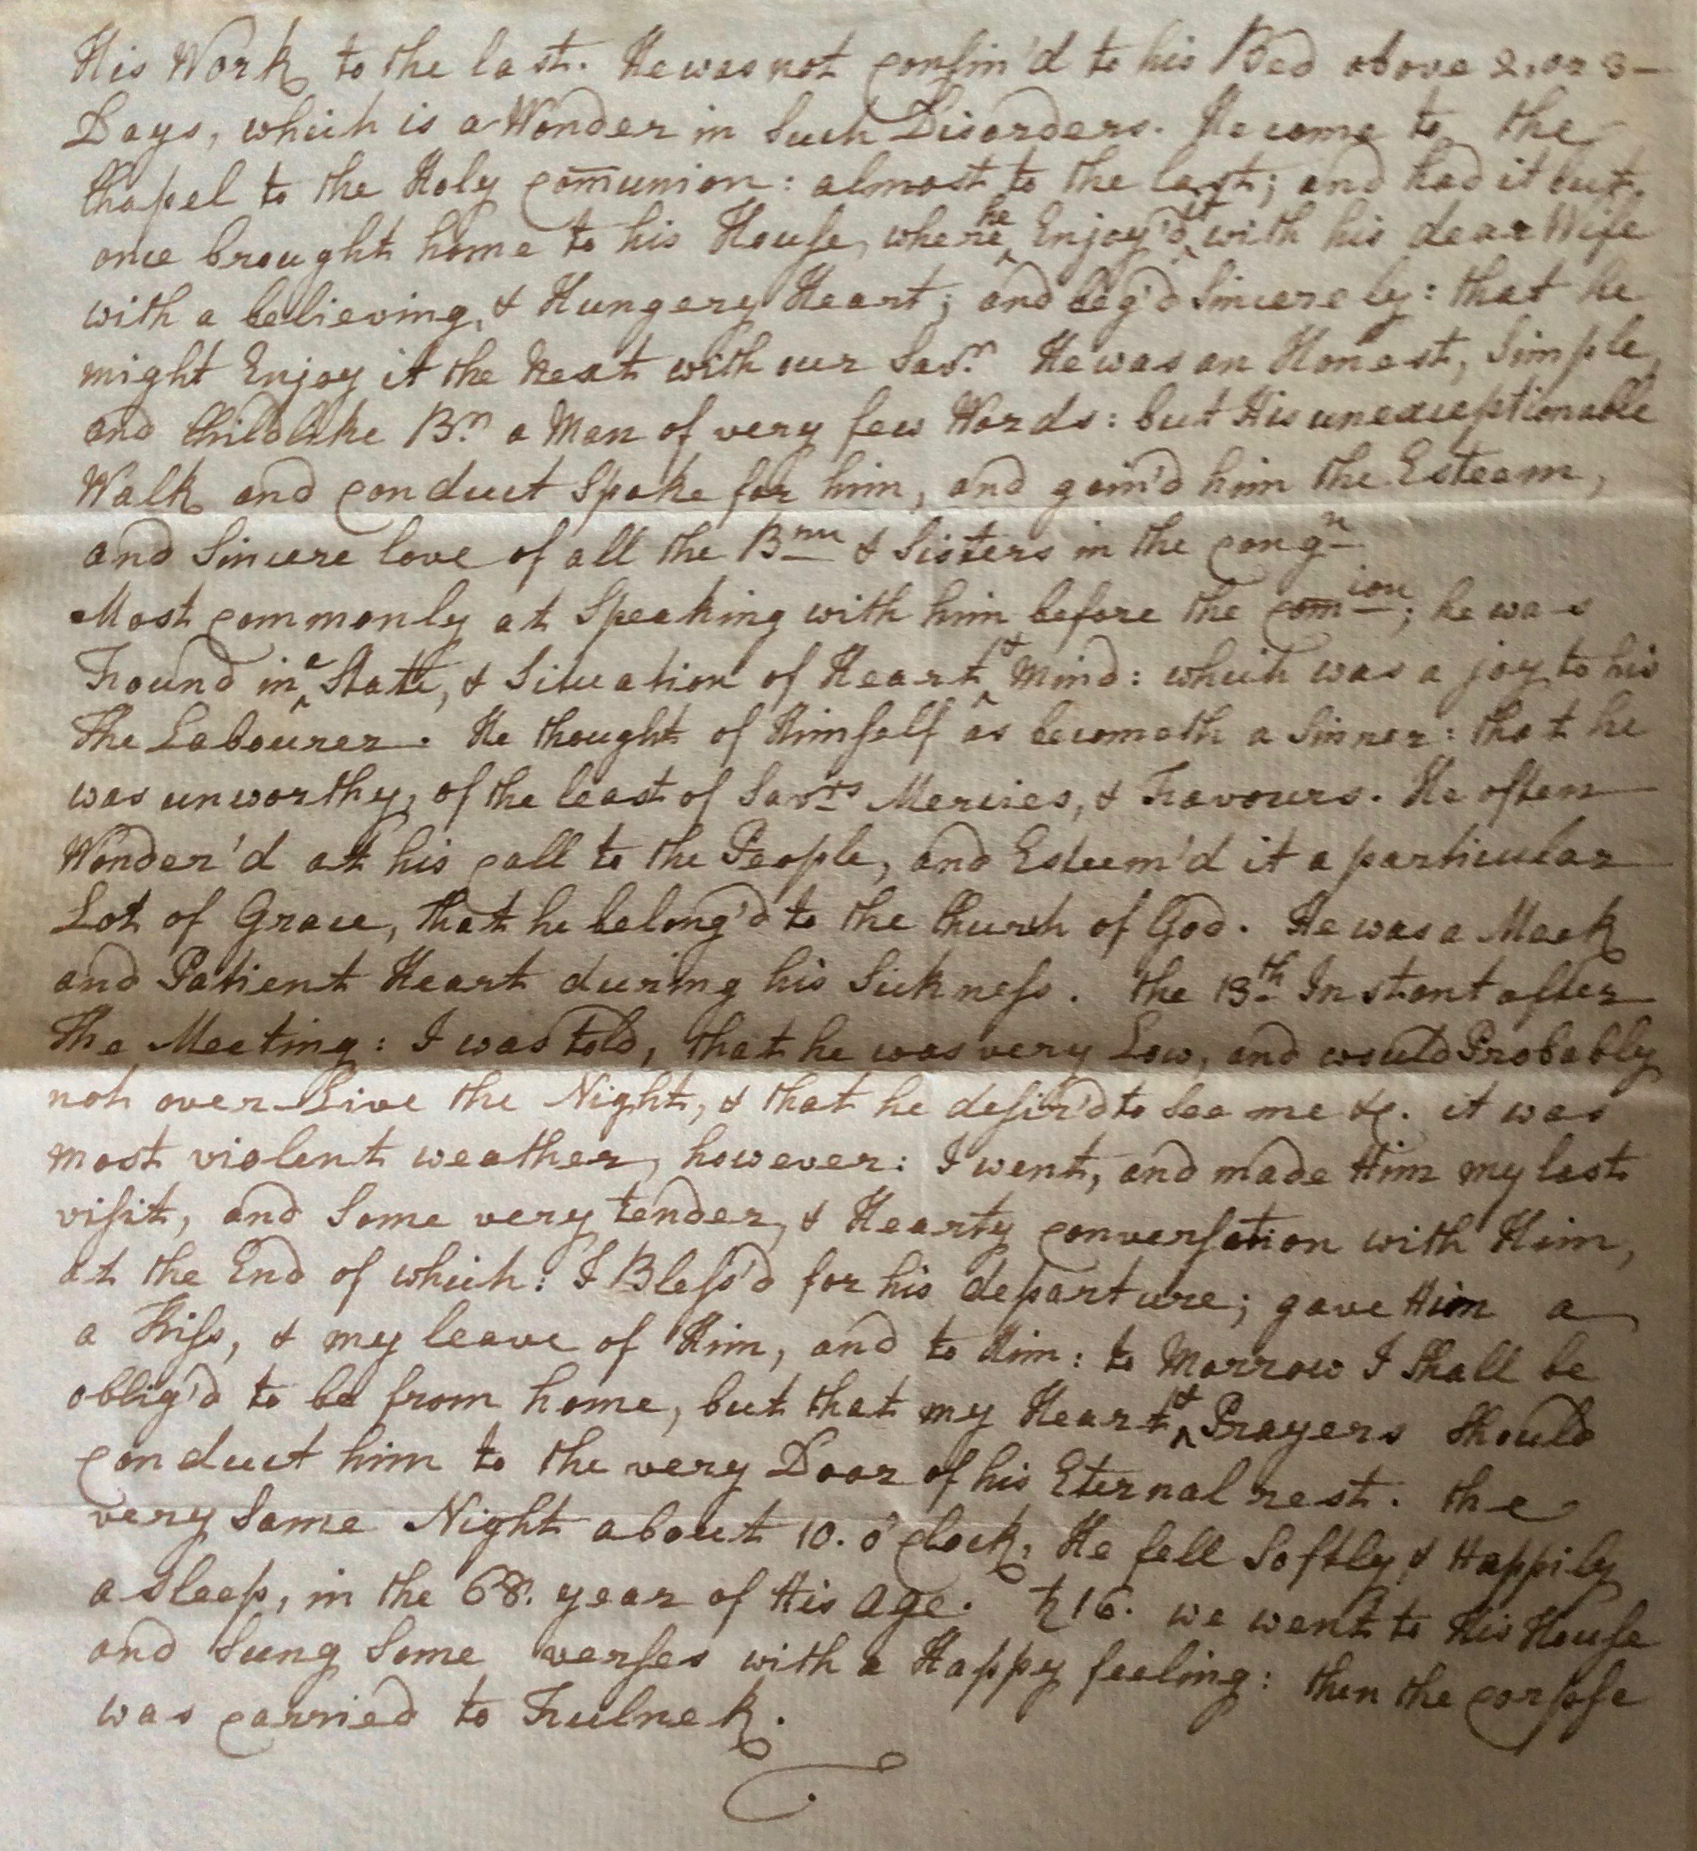 His Work to the last. He was not confin'd to his Bed above 2, or 3 —
Days, which is a Wonder in Such Disorders. He come to the
Chapel to the Holy com̅union: almost to the last; and had it but
once brought home to his House, where he Enjoy'd it with his dear Wife
with a believing, & Hungery Heart; and beg'd Sincerely: that he
might Enjoy it the Next with our Savr. He was an Honest, Simple,
and Childlike Br. a Man of very few Words: but His unexceptionable
Walk and conduct Spoke for him, and gain'd him the Esteam,
and Sincere love of all the Brn & Sisters in the congn
Most commonly at Speaking with him before the comion; he was
Found in a State, & Situation of Heart & Mind: which was a joy to his
The Labourer. He thought of Himself as becometh a Sinner: that he
was unworthy, of the least of Savrs Mercies, & Favours. He often
Wonder'd at his call to the People, and Esteem'd it a particular
Lot of Grace, that he belong'd to the Church of God. He was a Meek
and Patient Heart during his Sickness. The 13th Instant after
The Meeting: I was told, that he was very Low, and would Probably
not over-Live the Night, & that he desir'd to See me &c. it was
most violent weather, however: I went, and made Him my last
visit, and Some very tender, & Hearty conversation with Him,
at the End of which: I Bless'd for his departure; gave Him a
a Kiss, & my leave of Him, and to Him: to Morrow I Shall be
oblig'd to be from home, but that my Heart & Prayers Should
conduct him to the very Door of his Eternal rest. the
very Same Night about 10. o'clock, He fell Softly & Happily
a Sleep, in the 68. year of His Age. ♄ 16. we went to His House
and Sung Some verses with a Happy feeling: then the corpse
was carried to Fulnek.